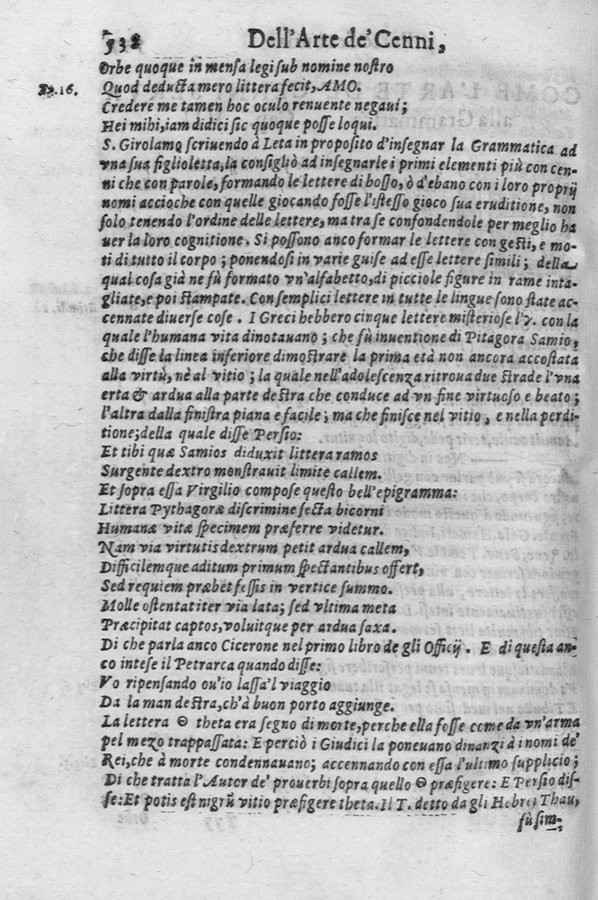 538 Dell'Arte de' Cenni,
Orbe quoque in mensa legi sub nomine nostro
Ep. 16. Quod deducta mero littera fecit, AMO.
Credere me tamen hoc oculo renuente negaui;
Hei mihi, iam didici sic quoque posse loqui.
S. Girolamo scriuendo à Leta in proposito d'insegnar la Grammatica ad
vna sua figlioletta, la consigliò ad insegnarle i primi elementi più con cen-
ni che con parole, formando le lettere di bosso, ò d'ebano con i loro proprij
nomi accioche con quelle giocando fosse l'istesso gioco sua eruditione, non
solo tenendo l'ordine delle lettere, ma tra se confondendole per meglio ha
uer la loro cognitione. Si possono anco formar le lettere con gesti, e mo-
ti di tutto il corpo; ponendosi in varie guise ad esse lettere simili; della
qual cosa già ne fù formato vn'alfabetto, di picciole figure in rame inta-
gliate, e poi stampate. Con semplici lettere in tutte le lingue sono state ac-
cennate diuerse cose. I Greci hebbero cinque lettere misteriose l'γ. con la
quale l'humana vita dinotauano; che fù inuentione di Pitagora Samio,
che disse la linea inferiore dimostrare la prima età non ancora accostata
alla virtù, nè al vitio; la quale nell'adolescenza ritroua due strade l'vna
erta & ardua alla parte destra che conduce ad vn fine virtuoso e beato;
l'altra dalla sinistra piana e facile; ma che finisce nel vitio, e nella perdi-
tione; della quale disse Persio:
Et tibi quæ Samios diduxit littera ramos
Surgente dextro monstrauit limite callem.
Et sopra essa Virgilio compose questo bell'epigramma:
Littera Pythagoræ discrimine secta bicorni
Humanæ vitæ specimem præferre videtur.
Nam via virtutis dextrum petit ardua callem,
Difficilemque aditum primum spectantibus offert,
Sed requiem præbet fessis in vertice summo.
Molle ostentat iter via lata; sed vltima meta
Præcipitat captos, voluitque per ardua saxa.
Di che parla anco Cicerone nel primo libro de gli Officij. E di questa an-
co intese il Petrarca quando disse:
Vo ripensando ou'io lassa'l viaggio
Da la man destra, ch'à buon porto aggiunge.
La lettera Θ theta era segno di morte, perche ella fosse come da vn'arma
pel mezo trappassata: E perciò i Giudici la poneuano dinanzi à i nomi de'
Rei, che à morte condennauano; accennando con essa l'ultimo supplicio;
Di che tratta l'Autor de' prouerbi sopra quello Θ præfigere: E Persio dis-
se: Et potis est nigrũ vitio præfigere theta. Il T. detto da gli Hebrei Thau,
fù sim;